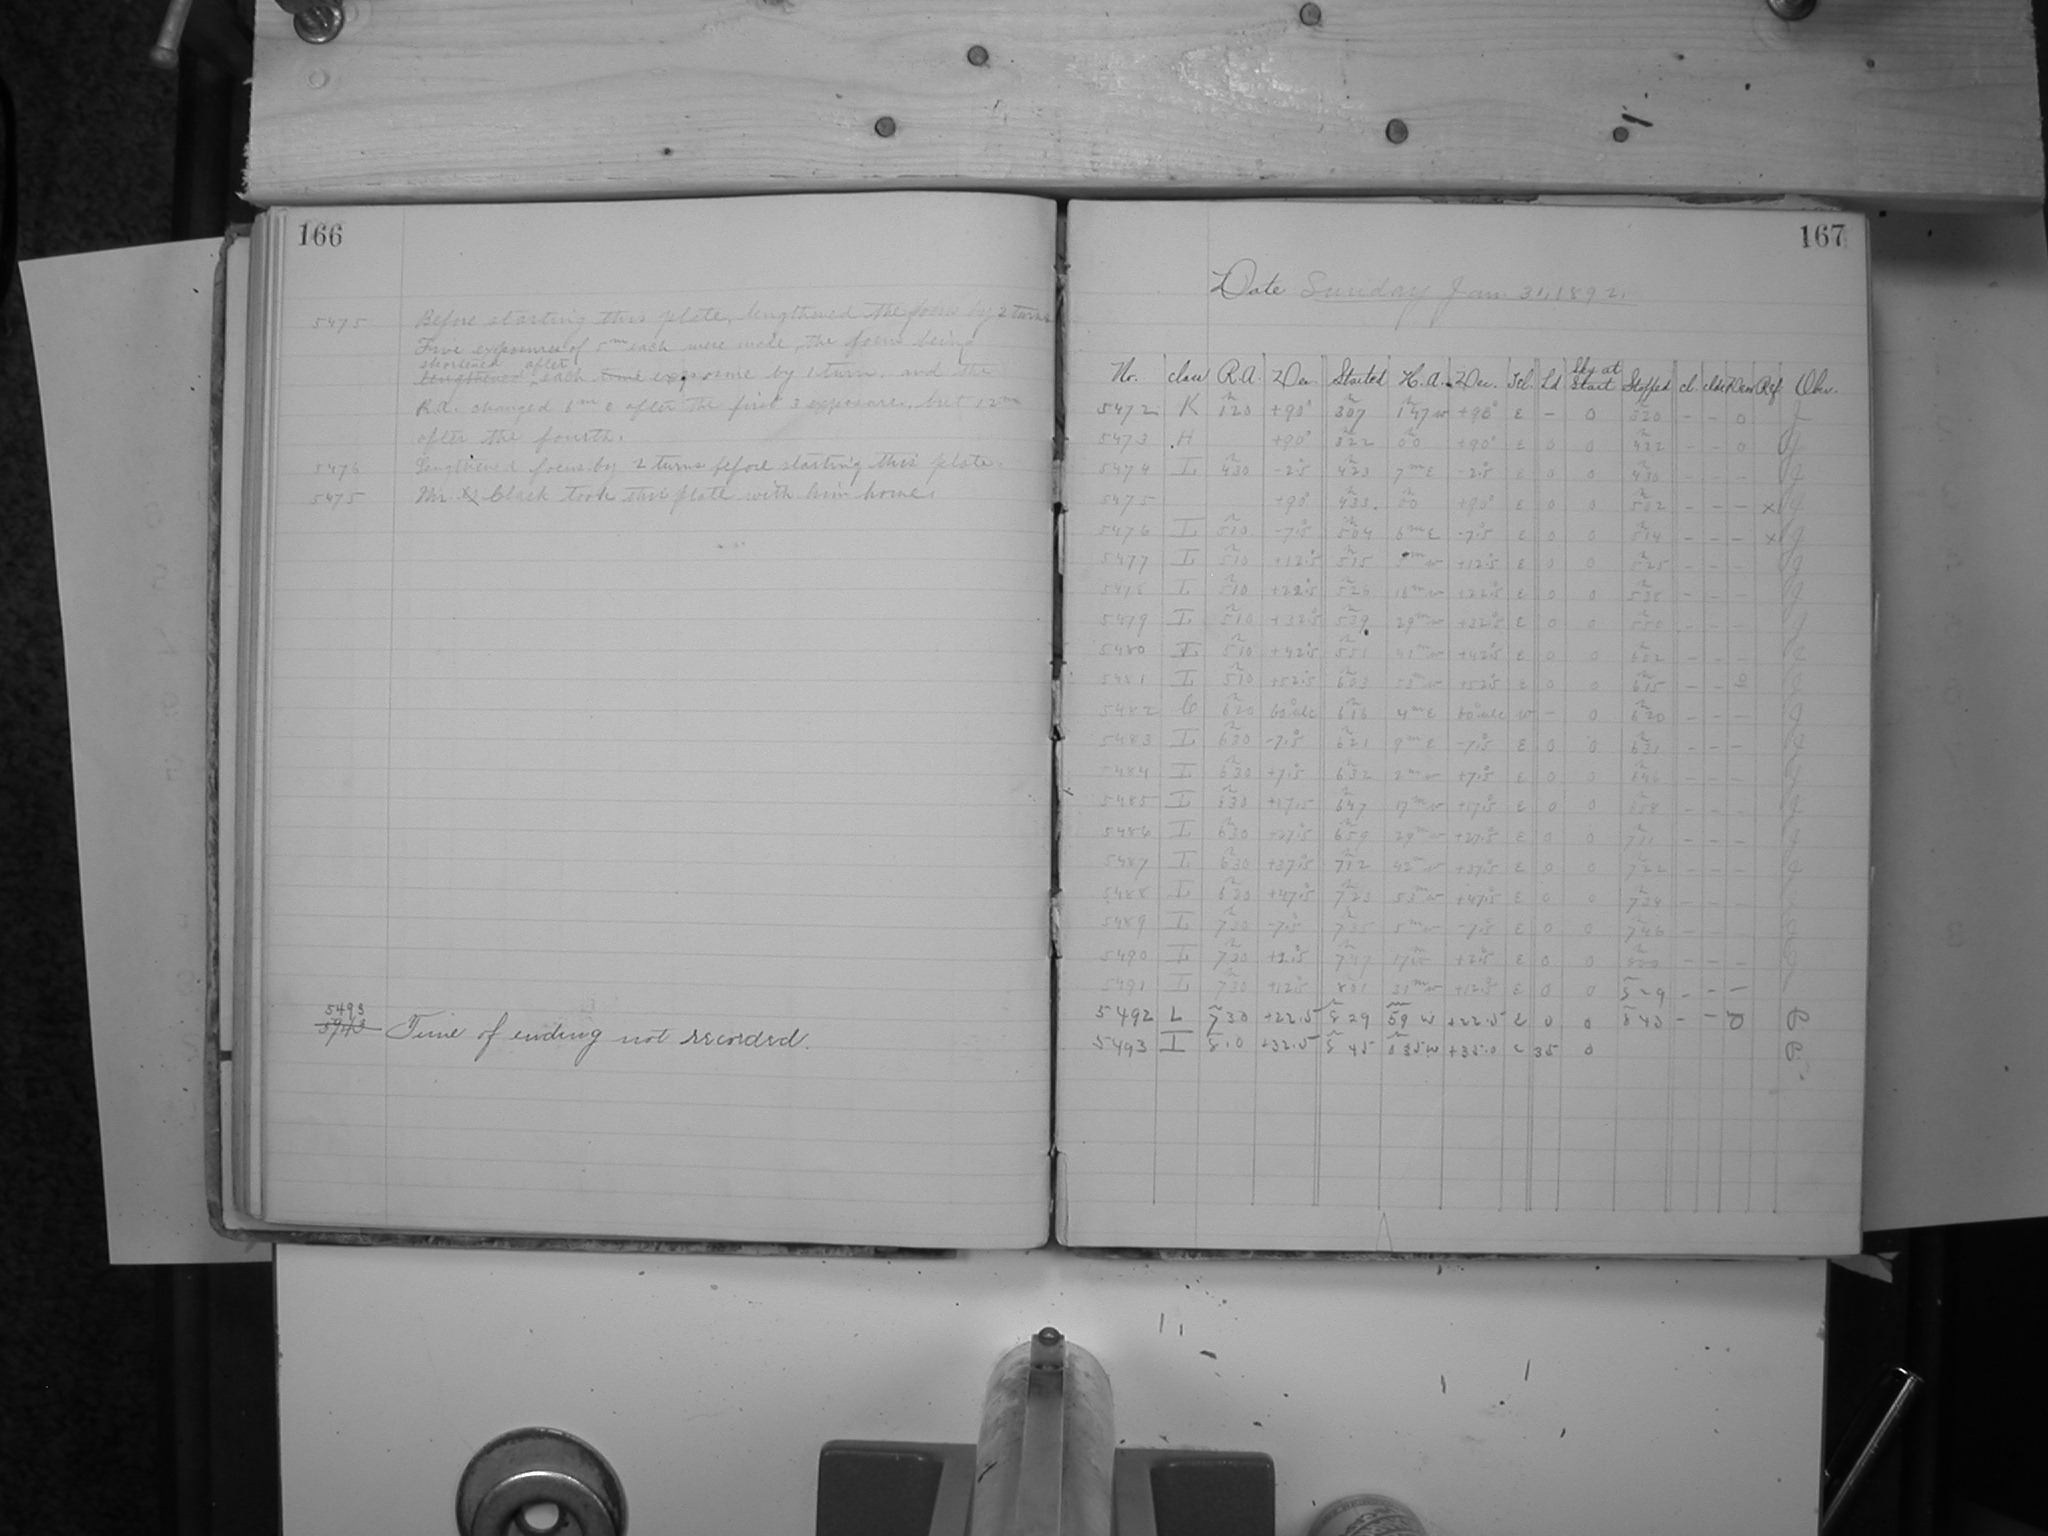 166
5475 Before starting this plate, lengthened the focus by 2 turns
Five exposures of 5m each were made, the focus being
shortened after
lengthened each time exposure by 1 turn, and the
R.A. changed 6m E after the first 3 exposures, but 12m
after the fourth.
5476 Lengthened focus by 2 turns before starting this plate.
5475 Mr. Clark took this plate with him home.
5493
Time of ending not recorded.
167
Date Sunday Jan. 31, 1892.
No. class R.A. Dec. Started H.A. Dec. Tel. Ld. Sky at Start Stopped cl. Rem Ref Obs.
5472 K 120 +90° 307 147 w +90° E - 0 320 - - 0 J
5473 H +90° 322 00 +90° E 0 0 422 - - 0 J
5474 I 430 -2.5 423 7m E -2.5 E 0 0 430 - - - J
5475 +90° 433 00 +90° E 0 0 502 - - - x J
5476 I 510 -7.5 504 6m E -7.5 E 0 0 514 - - - x J
5477 I 510 +12.5 515 5m w +12.5 E 0 0 525 - - - J
5478 I 510 +22.5 526 16m w +22.5 E 0 0 - - - J
5479 I 510 +32.5 539 29m w +32.5 E 0 0 550 - - - J
5480 I 510 +42.5 551 41m w +42.5 E 0 0 602 - - - J
5481 I 510 +52.5 603 53m w +52.5 E 0 0 615 - - 0 J
5482 C 620 616 4m E w - 0 620 - - - J
5483 I 630 -7.5 621 9m E -7.5 E 0 0 631 - - - J
5484 I 630 +7.5 632 2m w +7.5 E 0 0 646 - - - J
5485 I 630 +17.5 647 17m w +17.5 E 0 0 658 - - - J
5486 I 630 +27.5 659 29m w +27.5 E 0 0 711 - - - J
5487 I 630 +37.5 712 42m w +37.5 E 0 0 722 - - - J
5488 I 630 +47.5 723 53m w +47.5 E 0 0 734 - - - J
5489 I 730 -7.5 735 5m w -7.5 E 0 0 746 - - - J
5490 I 730 +2.5 747 17m w +2.5 E 0 0 800 - - - J
5491 I 730 +12.5 801 31m w +12.5 E 0 0 829 - - - J
5492 I 730 +22.5 829 59 w +22.5 E 0 0 843 - - 0
5493 I 810 +32.5 845 035 w E 35 0